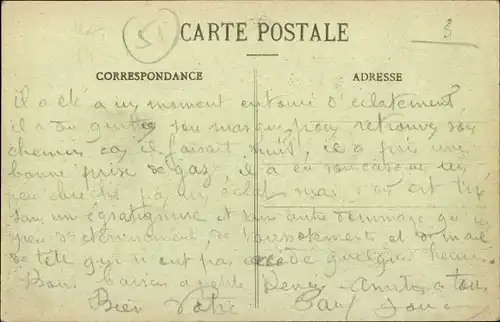 5
CARTE POSTALE
3
CORRESPONDANCE
ADRESSE
il a été a un moment entouré d'éclatement
il a du quitter son masque pour retrouver son
chemin car il faisait nuit, il a pris une
bonne prise de gaz, il a eu son casque un
peu par un éclat mais s'en est tiré
sans une égratignure et sans autre dommage qu'un
peu d'éternuement, de vomissements et de mal
de tête qui n'ont pas cédé quelques heures.
Bons baisers a petite Renée - Amitiés a tous
Bien Votre Paul